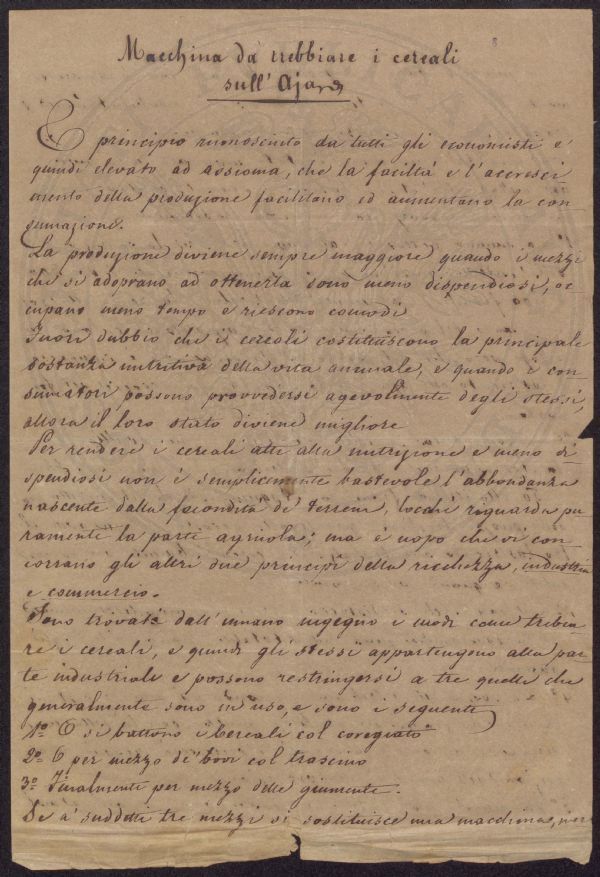 Macchina da trebbiare i cereali
sull' Aja
È principio riconosciuto da tutti gli economisti e
quindi elevato ad assioma, che la facilità e l'accresci
mento della produzione facilitano ed aumentano la con
sumazione.
La produzione diviene sempre maggiore quando i mezzi
che si adoprano ad ottenerla sono meno dispendiosi, oc
cupano meno tempo e riescono comodi
Fuori dubbio che i cereali costituiscono la principale
sostanza nutritiva della vita animale, e quando i con
sumatori possono provvedersi agevolmente degli stessi,
allora il loro stato diviene migliore
Per rendere i cereali atti alla nutrizione e meno di
spendiosi non è semplicemente bastevole l'abbondanza
nascente dalla fecondità de' terreni, locchè riguarda pu
ramente la parte agricola; ma è uopo che vi con
corrano gli altri due principî della ricchezza, industria
e commercio.
Sono trovati dall'umano ingegno i modi come trebia
re i cereali, e quindi gli stessi appartengono alla par
te industriale e possono restringersi a tre quelli che
generalmente sono in uso, e sono i seguenti
1º O si battono i cereali col coregiato
2º O per mezzo de' bovi col trascino
3º Finalmente per mezzo delle giumente.
Se a' suddetti tre mezzi si sostituisce una macchina,